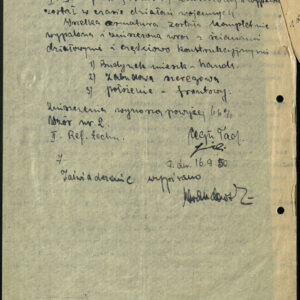 został w czasie działań wojennych
Wszelka armatura została kompletnie
wypalona i zniszczona wraz z ścianami
działowymi i częściowo konstrukcyjnymi
1) Budynek mieszk.-handl.
2) Zabudowa szeregowa
3) położenie - frontowy.
Zniszczenia wynoszą powyżej 66%
Wzór nr. 2.
II. Ref. Techn.
dn. 16.9.50
Zaświadczenie wypisano